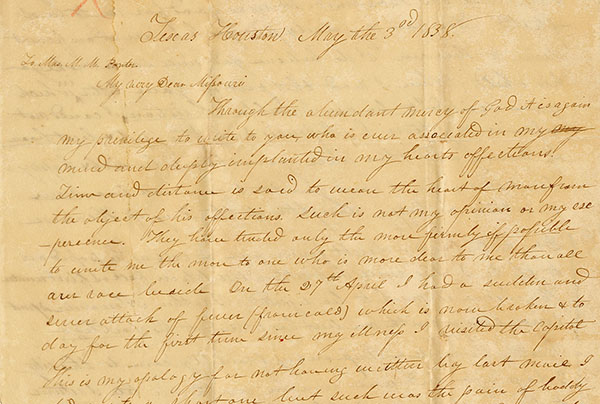 Texas Houston May the 3rd 1838.
To Mrs. M. M.
My very Dear Missouri
Through the abundant mercy of God it is again
my privilege to write to you, who is ever associated in my my
mind and deeply implanted in my hearts affections.
Time and distance is said to wean the heart of man from
the object of his affections. Such is not my opinion or my ex
-perience. They have tended only the more firmly if possible
to unite me the more to one who is more dear to me than all
our race beside On the 27th April I had a sudden and
sever attack of fever (from cold) which is now broken & to
day for the first time since my illness I visited the Capitol
This is my apology for not having written by last mail I
but such was the pain of body